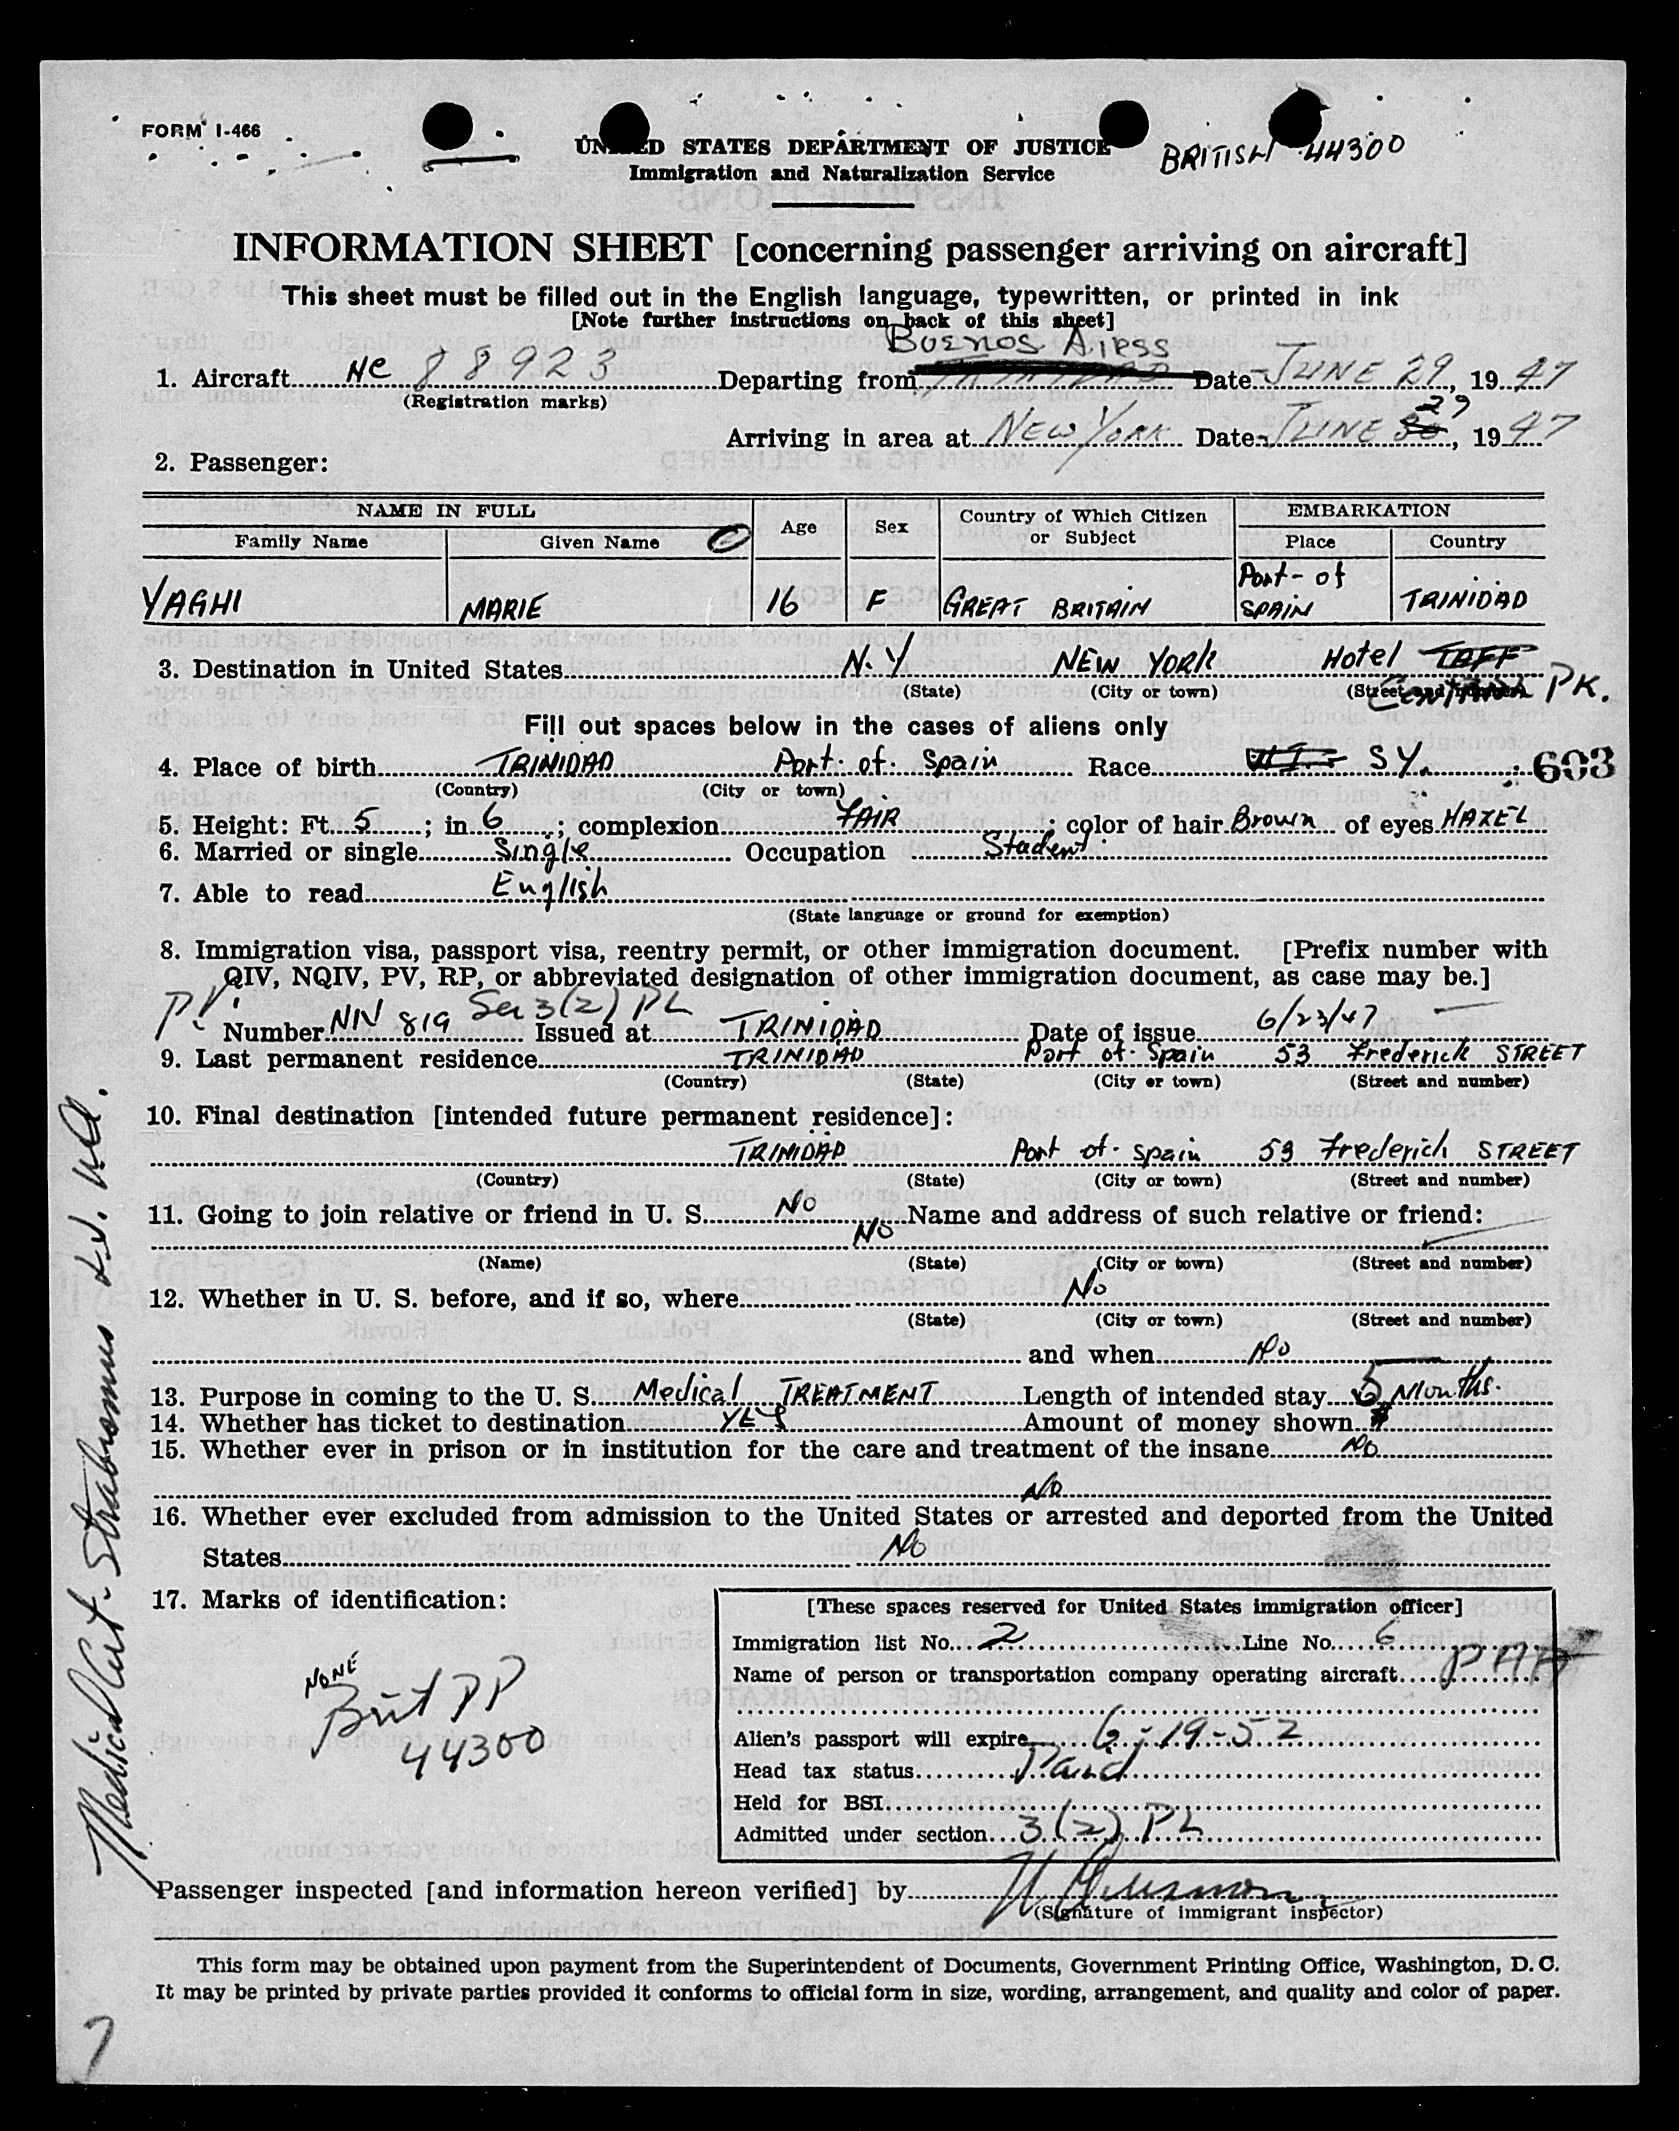 FORM I-466
UNITED STATES DEPARTMENT OF JUSTICE
Immigration and Naturalization Service
BRITISH 44300
INFORMATION SHEET [concerning passenger arriving on aircraft]
This sheet must be filled out in the English language, typewritten, or printed in ink
[Note further instructions on back of this sheet]
Buenos Aires
1. Aircraft NC 88923 Departing from Date JUNE 29, 1947
(Registration marks)
29
Arriving in area at NEW YORK Date JUNE 30, 1947
2. Passenger:
NAME IN FULL Age Sex Country of Which Citizen or Subject EMBARKATION
Family Name Given Name Place Country
YAGHI MARIE 16 F GREAT BRITAIN Port-of SPAIN TRINIDAD
3. Destination in United States N.Y NEW YORK Hotel TAFF
(State) (City or town) (Street and number) CENTRAL PK.
Fill out spaces below in the cases of aliens only
4. Place of birth TRINIDAD Port. of. Spain Race SY. 603
(Country) (City or town)
5. Height: Ft. 5; in. 6; complexion FAIR; color of hair Brown of eyes HAZEL
6. Married or single Single Occupation Student
7. Able to read English
(State language or ground for exemption)
8. Immigration visa, passport visa, reentry permit, or other immigration document. [Prefix number with
QIV, NQIV, PV, RP, or abbreviated designation of other immigration document, as case may be.]
PV. Number NIV 819 Sec 3(2) PL Issued at TRINIDAD Date of issue 6/23/47
9. Last permanent residence TRINIDAD Port of. Spain 53 Frederick STREET
(Country) (State) (City or town) (Street and number)
10. Final destination [intended future permanent residence]:
TRINIDAD Port of. Spain 53 Frederich STREET
(Country) (State) (City or town) (Street and number)
11. Going to join relative or friend in U. S. No Name and address of such relative or friend:
No
(Name) (State) (City or town) (Street and number)
12. Whether in U. S. before, and if so, where No
(State) (City or town) (Street and number)
and when No
13. Purpose in coming to the U. S. Medical TREATMENT Length of intended stay 5 Months.
14. Whether has ticket to destination YES Amount of money shown $
15. Whether ever in prison or in institution for the care and treatment of the insane No
No
16. Whether ever excluded from admission to the United States or arrested and deported from the United
States No
17. Marks of identification:
NONE
Brit PP
44300
[These spaces reserved for United States immigration officer]
Immigration list No. 2 Line No. 6
Name of person or transportation company operating aircraft PAA
Alien's passport will expire 6-19-52
Head tax status Paid
Held for BSI
Admitted under section 3(2) PL
Passenger inspected [and information hereon verified] by
(Signature of immigrant inspector)
This form may be obtained upon payment from the Superintendent of Documents, Government Printing Office, Washington, D. C.
It may be printed by private parties provided it conforms to official form in size, wording, arrangement, and quality and color of paper.
Medical Cert. Strabismus
7